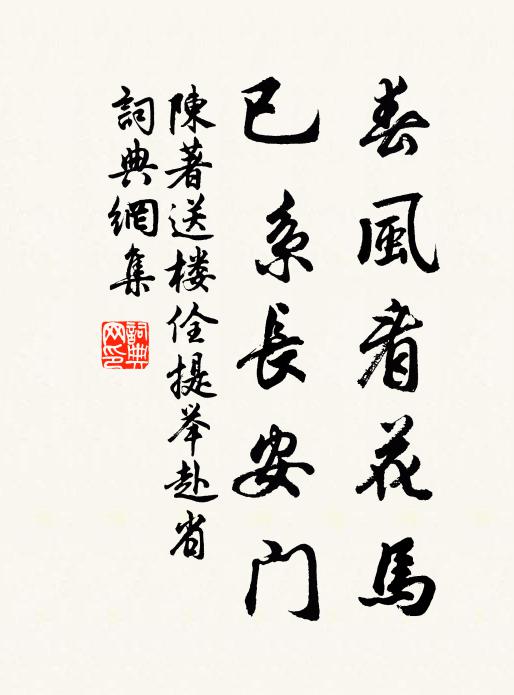 春風看花馬
已系長安門
陳著送楼佺提举赴省
詞典網集
詞典网印